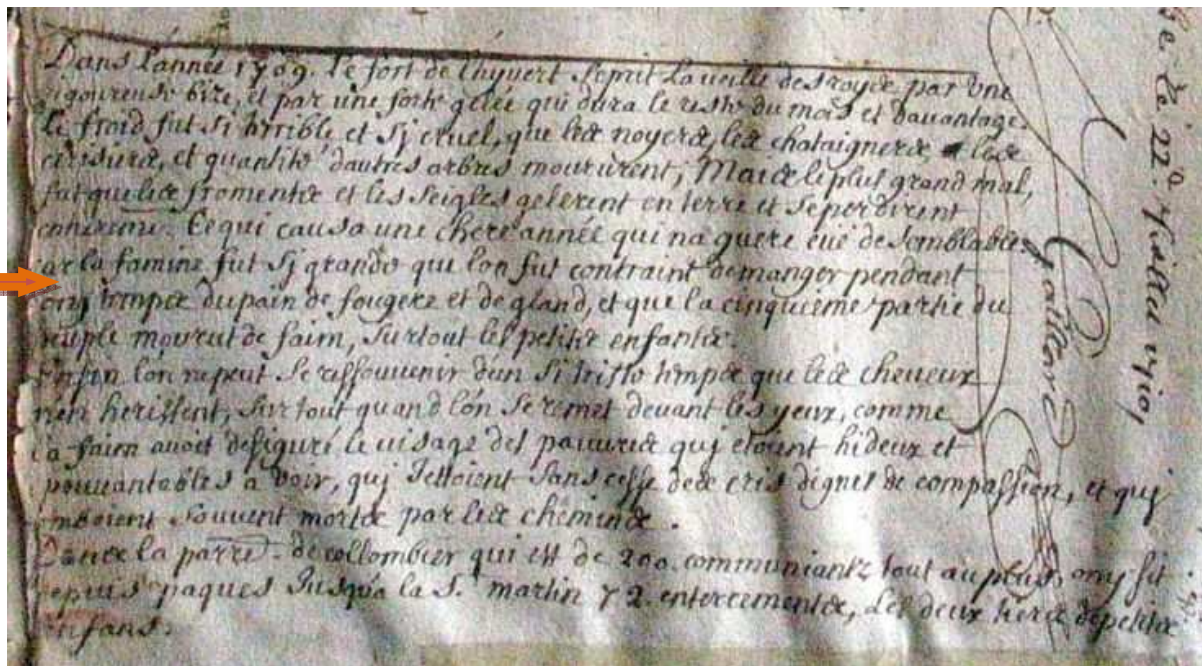 Dans l'année 1709. le fort de l'hyvert se prit la veille des royce par une
rigoureuse bize, et par une forte gelée qui dura le reste du mois et davantage.
le froid fut si terrible et sj cruel, que les noyers, les chataigners, les
cerisiers, et quantité d'autres arbres moururent, Mais le plus grand mal,
fut que les froments et les seigles gelerent en terre et se perdirent
entierem̃. Ce qui causa une chere année qui na guere eüe de semblable
car la famine fut sj grande que lon fut contraint de manger pendant
long temps du pain de fougere et de gland, et que la cinquieme partie du
peuple mourut de faim, surtout les petits enfants.
Enfin l'on ne peut se ressouvenir d'un si triste temps que les cheveux
n'en herissent, surtout quand l'on se remet devant les yeux, comme
la faim avoit defiguré le visage des pauvres quj etoient hideux et
epouvantables a voir, quj jettoient sans cesse des cris dignes de compassion, et quj
tomboient souvent morts par les chemins.
Dans la parre. de collombier qui est de 200. communiantz tout au plus, on y fit
depuis paques jusqu'a la St. martin 72. enterrements, les deux tiers de petits
enfans.
le 22e. Juillet 1710